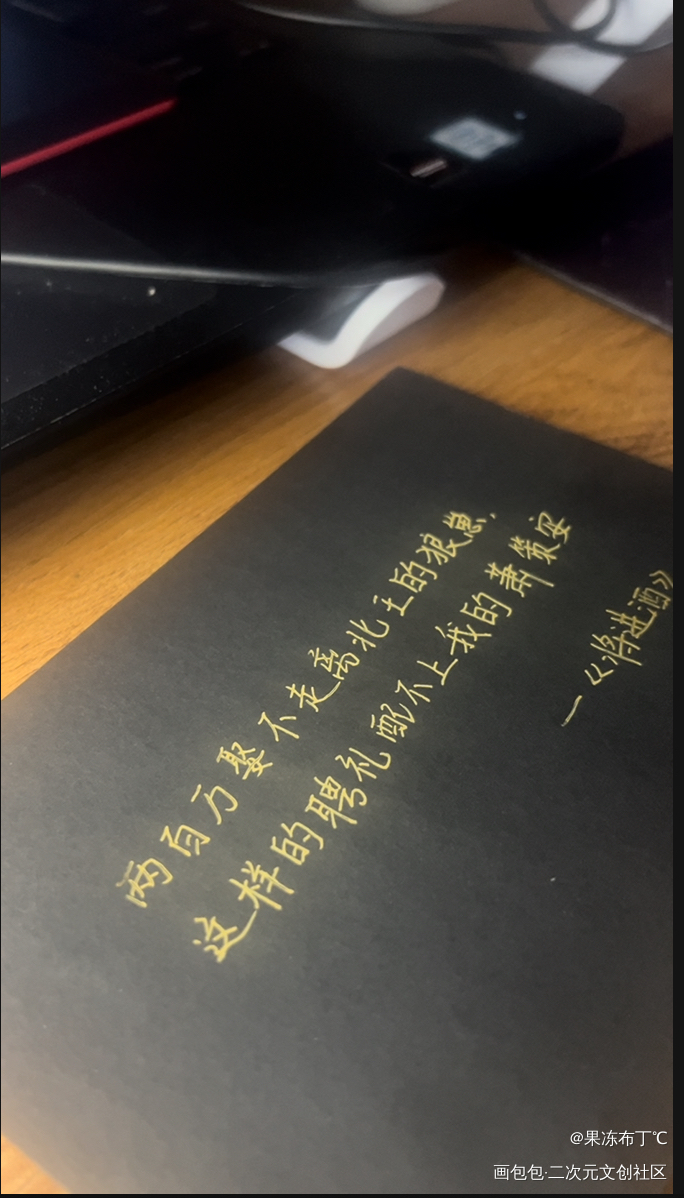 两百万娶不走离北王的狼崽,
这样的聘礼配不上我的萧策安
—《将进酒》
@果冻布丁℃
画包包·二次元文创社区